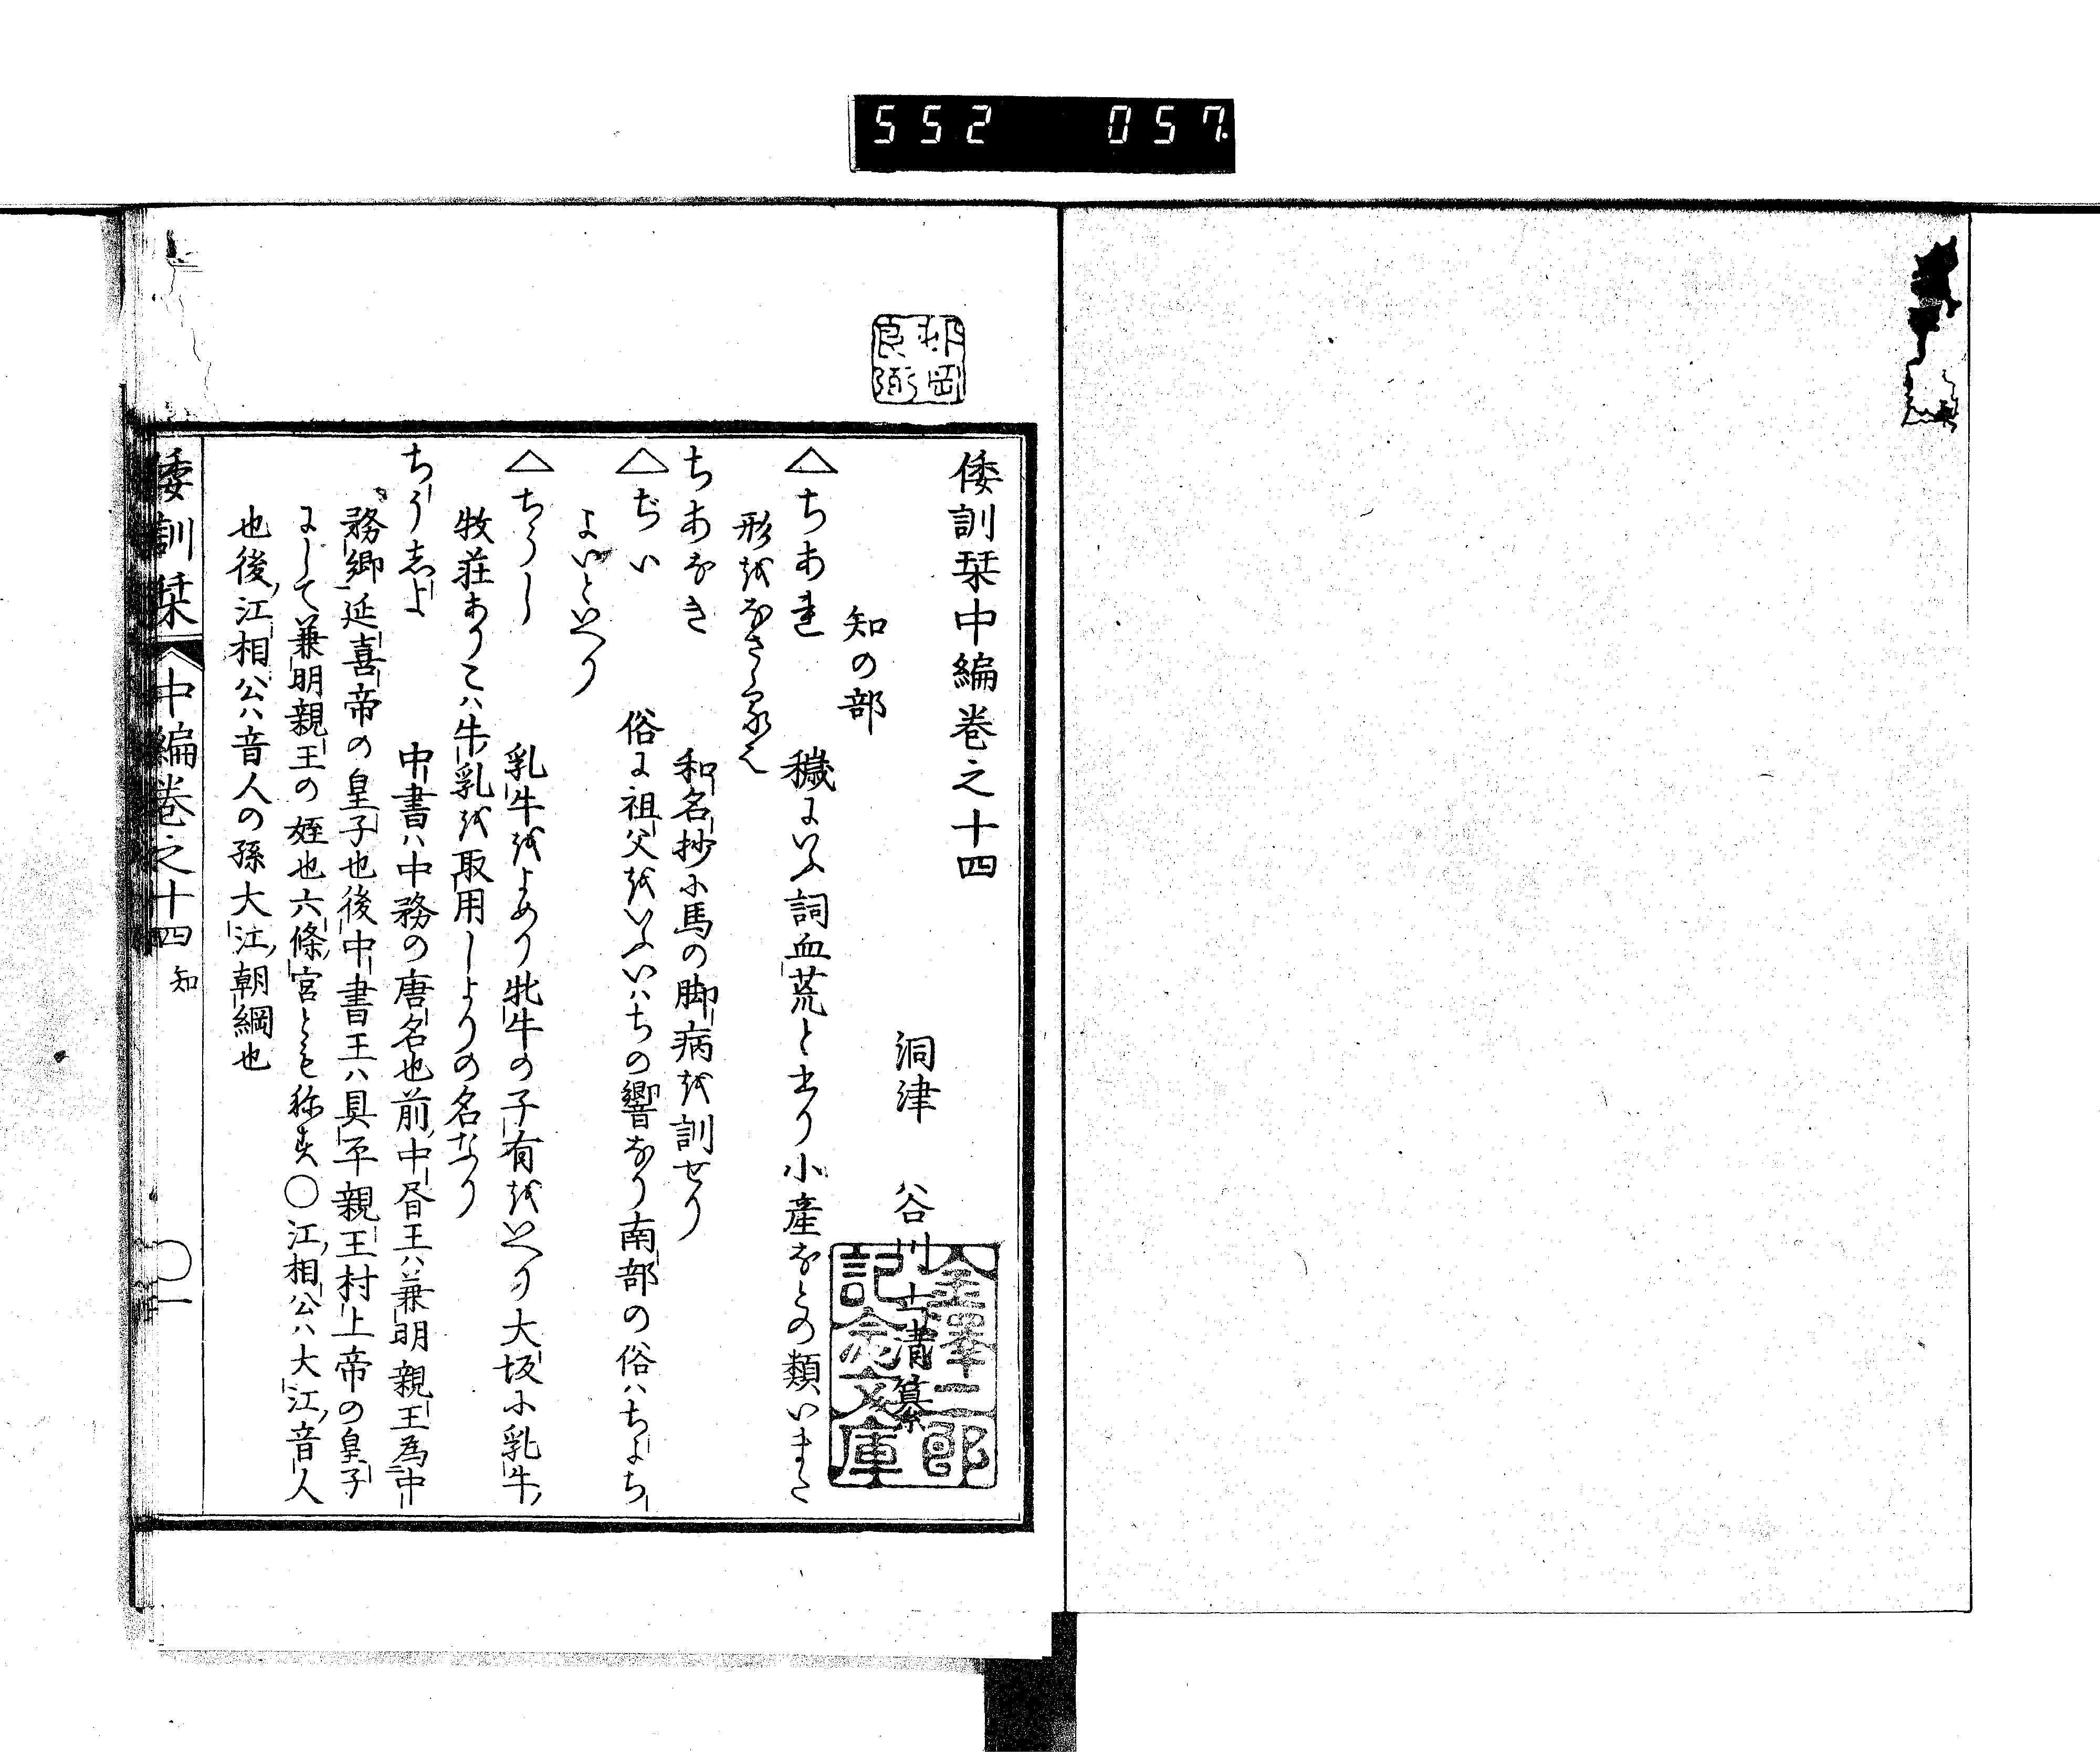 552 057
倭訓栞中編巻之十四
洞津 谷川士清纂
知の部
△ちあれ 穢にいふ詞血荒と書り小産なとの類いまた
形をなさゝる
ちあなき 和名抄に馬の脚病を訓せり
△ぢい 俗に祖父をいふいハちの響なり南部の俗ハちよち
よいといへり
△ちうし 乳牛をよめり牝牛の子有をいへり大坂に乳牛
牧荘ありこハ牛乳を取用しよりの名なり
ちうしよ 中書ハ中務の唐名也前中書王ハ兼明親王為中
務卿延喜帝の皇子也後中書王ハ具平親王村上帝の皇子
にして兼明親王の姪也六條宮とも称す〇江相公ハ大江音人
也後江相公ハ音人の孫大江朝綱也
倭訓栞 中編巻之十四 知 〇一
金澤二郎
記念文庫